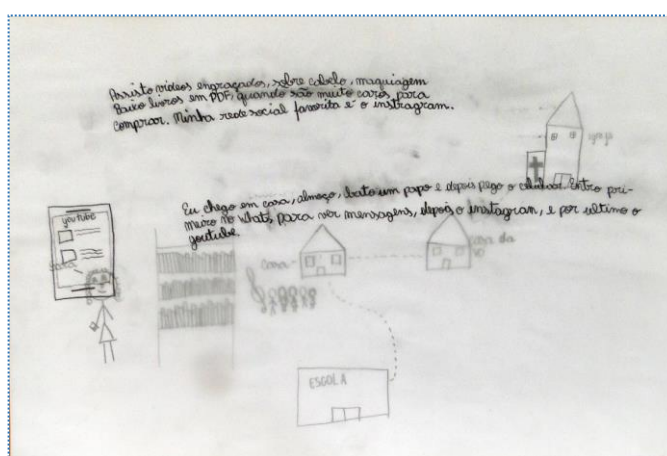 Assisto vídeos engraçados, sobre cabelo, maquiagem
Baixo livros em PDF, quando são muito caros para
comprar. Minha rede social favorita é o instragram.
igreja
Eu chego em casa, almoço, bato um papo e depois pego o celular. Entro pri-
meiro no Whats, para ver mensagens, depois o instagram, e por ultimo o
youtube.
youtube
casa
casa da
vó
ESCOLA